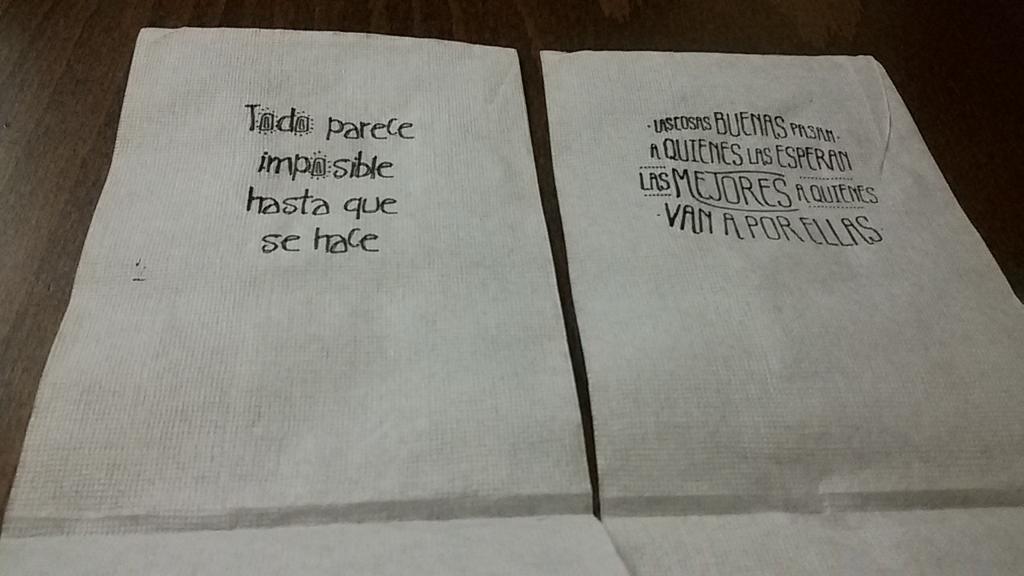 Todo parece
imposible
hasta que
se hace
·LAS COSAS BUENAS PASAN·
A QUIENES LAS ESPERAN
LAS MEJORES A QUIENES
·VAN A POR ELLAS·